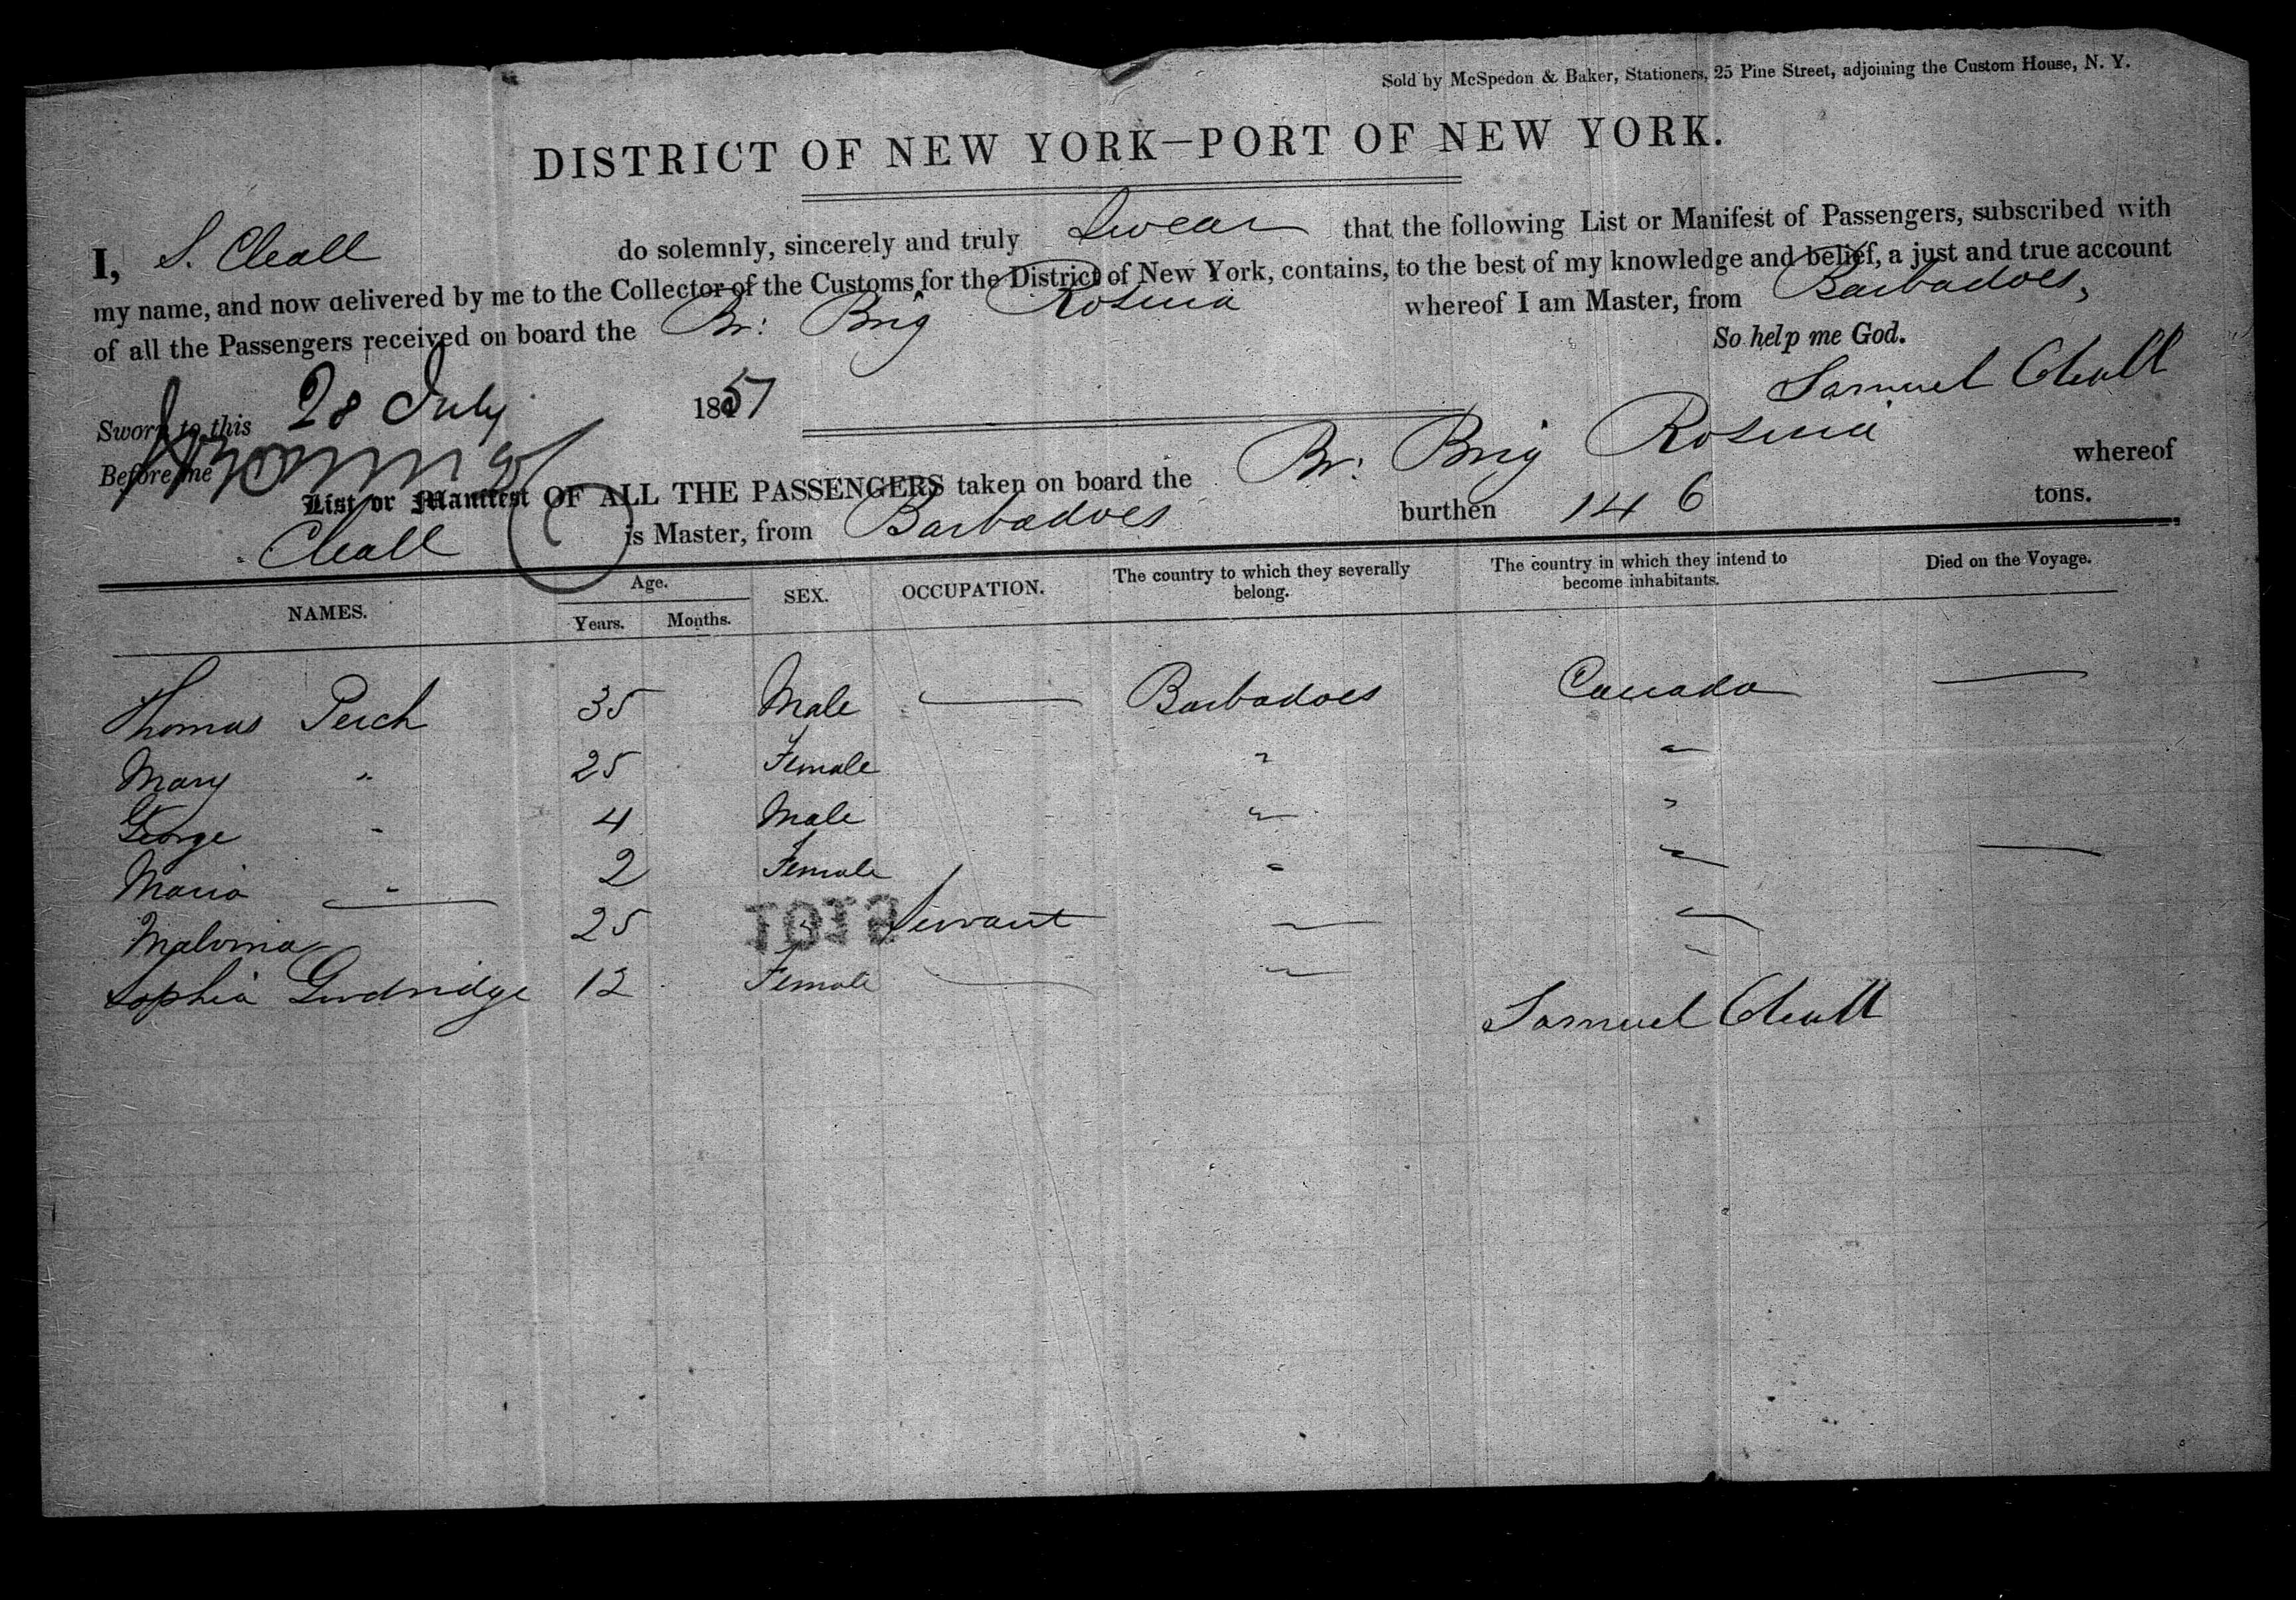 Sold by McSpedon & Baker, Stationers, 25 Pine Street, adjoining the Custom House, N. Y.
DISTRICT OF NEW YORK—PORT OF NEW YORK.
I, S. Cleall do solemnly, sincerely and truly Swear that the following List or Manifest of Passengers, subscribed with
my name, and now delivered by me to the Collector of the Customs for the District of New York, contains, to the best of my knowledge and belief, a just and true account
of all the Passengers received on board the Br: Brig Rosina whereof I am Master, from Barbadoes,
So help me God.
Sworn to this 28 July 1851
Samuel Cleall
Before me
List or Manifest OF ALL THE PASSENGERS taken on board the Br: Brig Rosina whereof
Cleall is Master, from Barbadoes burthen 146 tons.
NAMES. Age. Years. Months. SEX. OCCUPATION. The country to which they severally belong. The country in which they intend to become inhabitants. Died on the Voyage.
Thomas Perch 35 Male — Barbadoes Canada —
Mary " 25 Female " "
George " 4 Male " "
Maria " 2 Female " " —
Malvina — 25 Servant " "
Sophia 12 Female — " "
Samuel Cleall